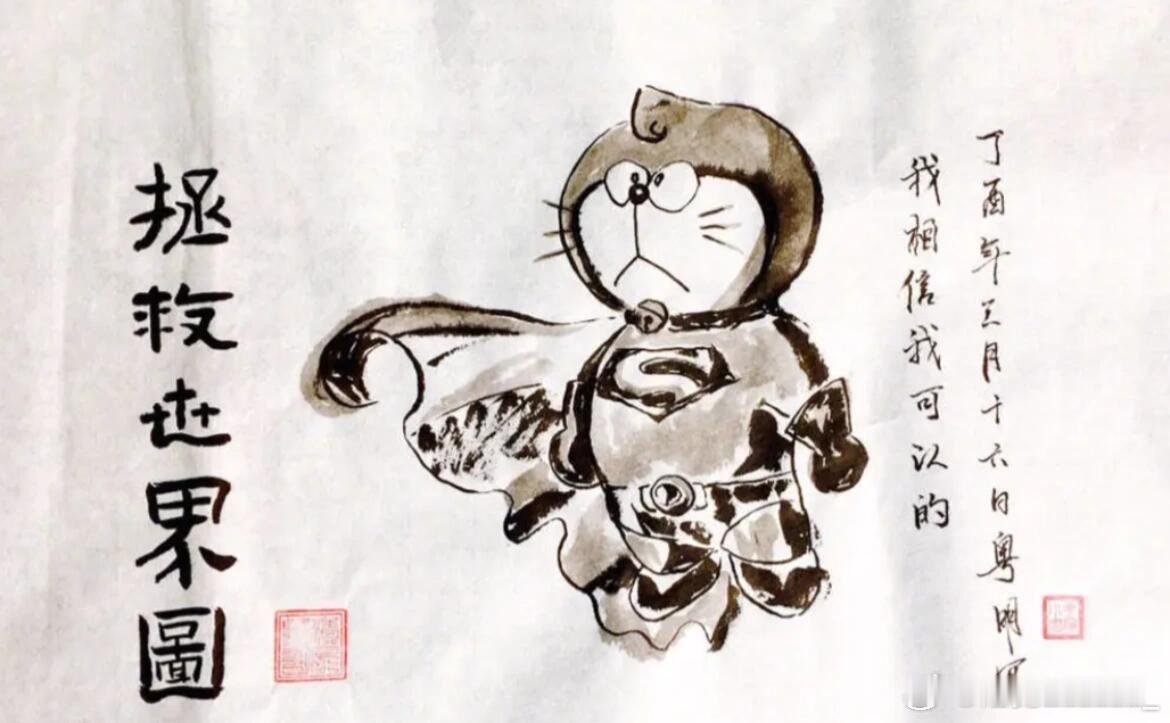 丁酉年三月十六日粤明
我相信我可以的
S
拯救世界圖